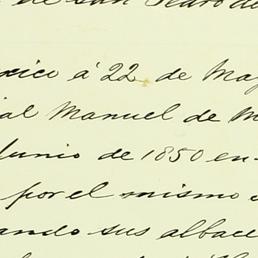 de San Pedro de
xico á 22 de Ma
al Manuel de M
Junio de 1850 en
por el mismo
ando sus albace